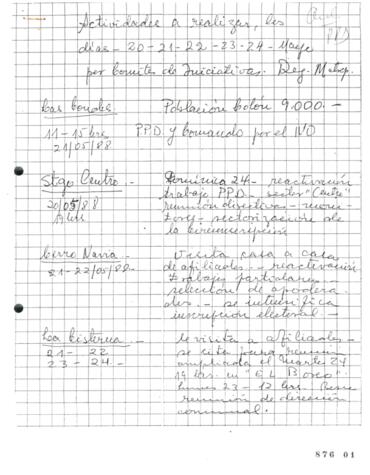 Actividades a realizar, los
PPD
días - 20-21-22-23-24 - Mayo
por Comites de Iniciativas. Reg. Metrop.
Las Condes. Población Colón 9.000.-
11-15 hrs P.P.D. y Comando por el NO
21/05/88
Stgo Centro - Dominica 24 - reactivación
trabajo PPD - sector "Centro"
20/05/88 reunión directivas -
sectorización de
la circunscripción
Cerro Navia - Visita casa a casa
21-22/05/88 - de afiliados - reactivación
trabajos particulares -
selección de apodera
dos. - se intensifica
inscripción electoral -
La Cisterna - Se visita a afiliados -
21 - 22 - se cita para reunión
23 - 24 - ampliada el Martes 24
19 hrs. en "EL Bosco"
lunes 23 - 12 hrs.
reunión de dirección
comunal.
876 01